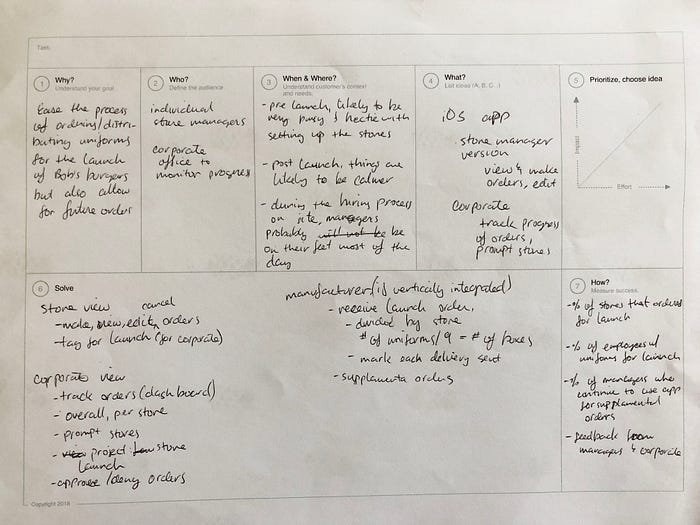 Task:
1 Why?
Understand your goal.
Ease the process
of ordering/distri-
buting uniforms
for the launch
of Bob's burgers
but also allow
for future orders
2 Who?
Define the audience.
individual
store managers
corporate
office to
monitor progress
3 When & Where?
Understand customer's context
and needs.
- pre launch, likely to be
very busy & hectic with
setting up the stores
- post launch, things are
likely to be calmer
- during the hiring process
on site, managers
probably will not be be
on their feet most of the
day
4 What?
List ideas (A, B, C...)
iOS app
store manager
version
view & make
orders, edit
corporate
track progress
of orders,
prompt stores
5 Prioritize, choose idea
Impact
Effort
6 Solve
store view cancel
- make, view, edit, orders
- tag for launch (for corporate)
corporate view
- track orders (dashboard)
- overall, per store
- prompt stores
- view project store
launch
- approve/deny orders
manufacturer (if vertically integrated)
- receive launch order,
- divided by store
# of uniforms/9 = # of boxes
- mark each delivery sent
- supplementa orders
7 How?
Measure success.
- % of stores that ordered
for launch
- % of employees w/
uniforms for launch
- % of managers who
continue to use app
for supplemental
orders
- feedback from
managers & corporate
Copyright 2018